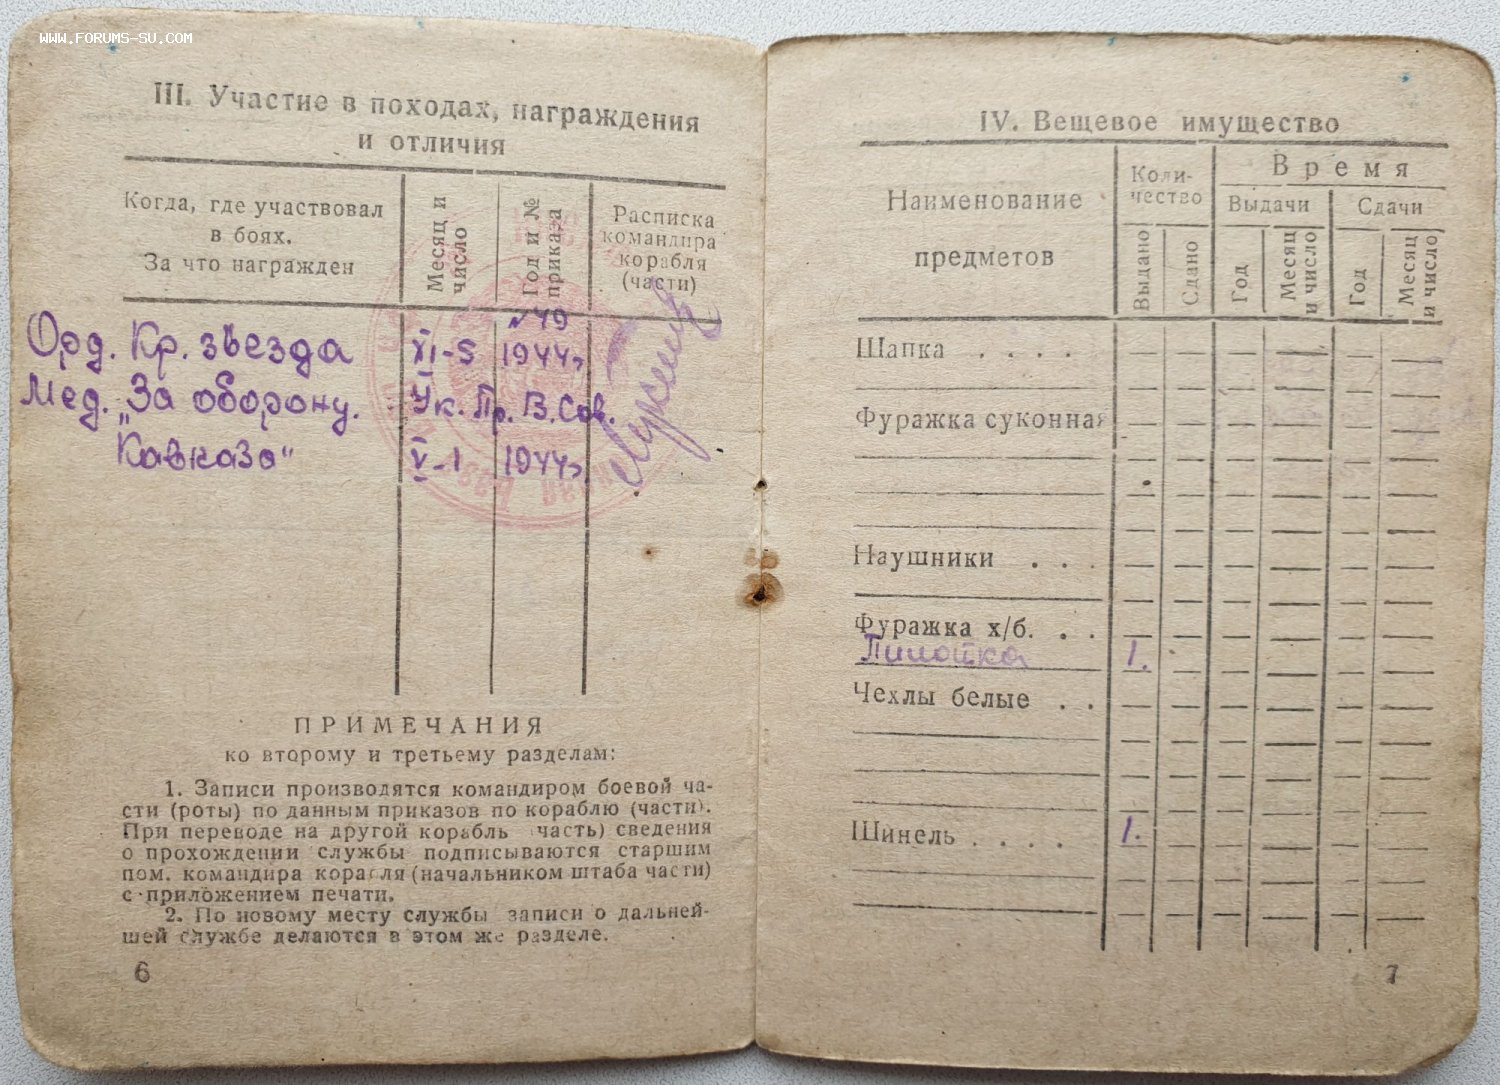 WWW.FORUMS-SU.COM
III. Участие в походах, награждения
и отличия
Когда, где участвовал
в боях.
За что награжден
Месяц и
число
Год и №
приказа
Расписка
командира
корабля
(части)
№49
Орд. Кр. звезда XI-5 1944г
Мед. „За оборону. Ук. Пр. В. Сов.
Кавказа" V-1 1944г
ПРИМЕЧАНИЯ
ко второму и третьему разделам:
1. Записи производятся командиром боевой ча-
сти (роты) по данным приказов по кораблю (части).
При переводе на другой корабль часть) сведения
о прохождении службы подписываются старшим
пом. командира корабля (начальником штаба части)
с приложением печати.
2. По новому месту службы записи о дальней-
шей службе делаются в этом же разделе.
6
IV. Вещевое имущество
Наименование
предметов
Коли-
чество
Выдано
Сдано
Время
Выдачи
Сдачи
Год
Месяц
и число
Год
Месяц
и число
Шапка . . . .
Фуражка суконная
Наушники . . .
Фуражка х/б. . .
Пилотка 1.
Чехлы белые . .
Шинель . . . . 1.
7